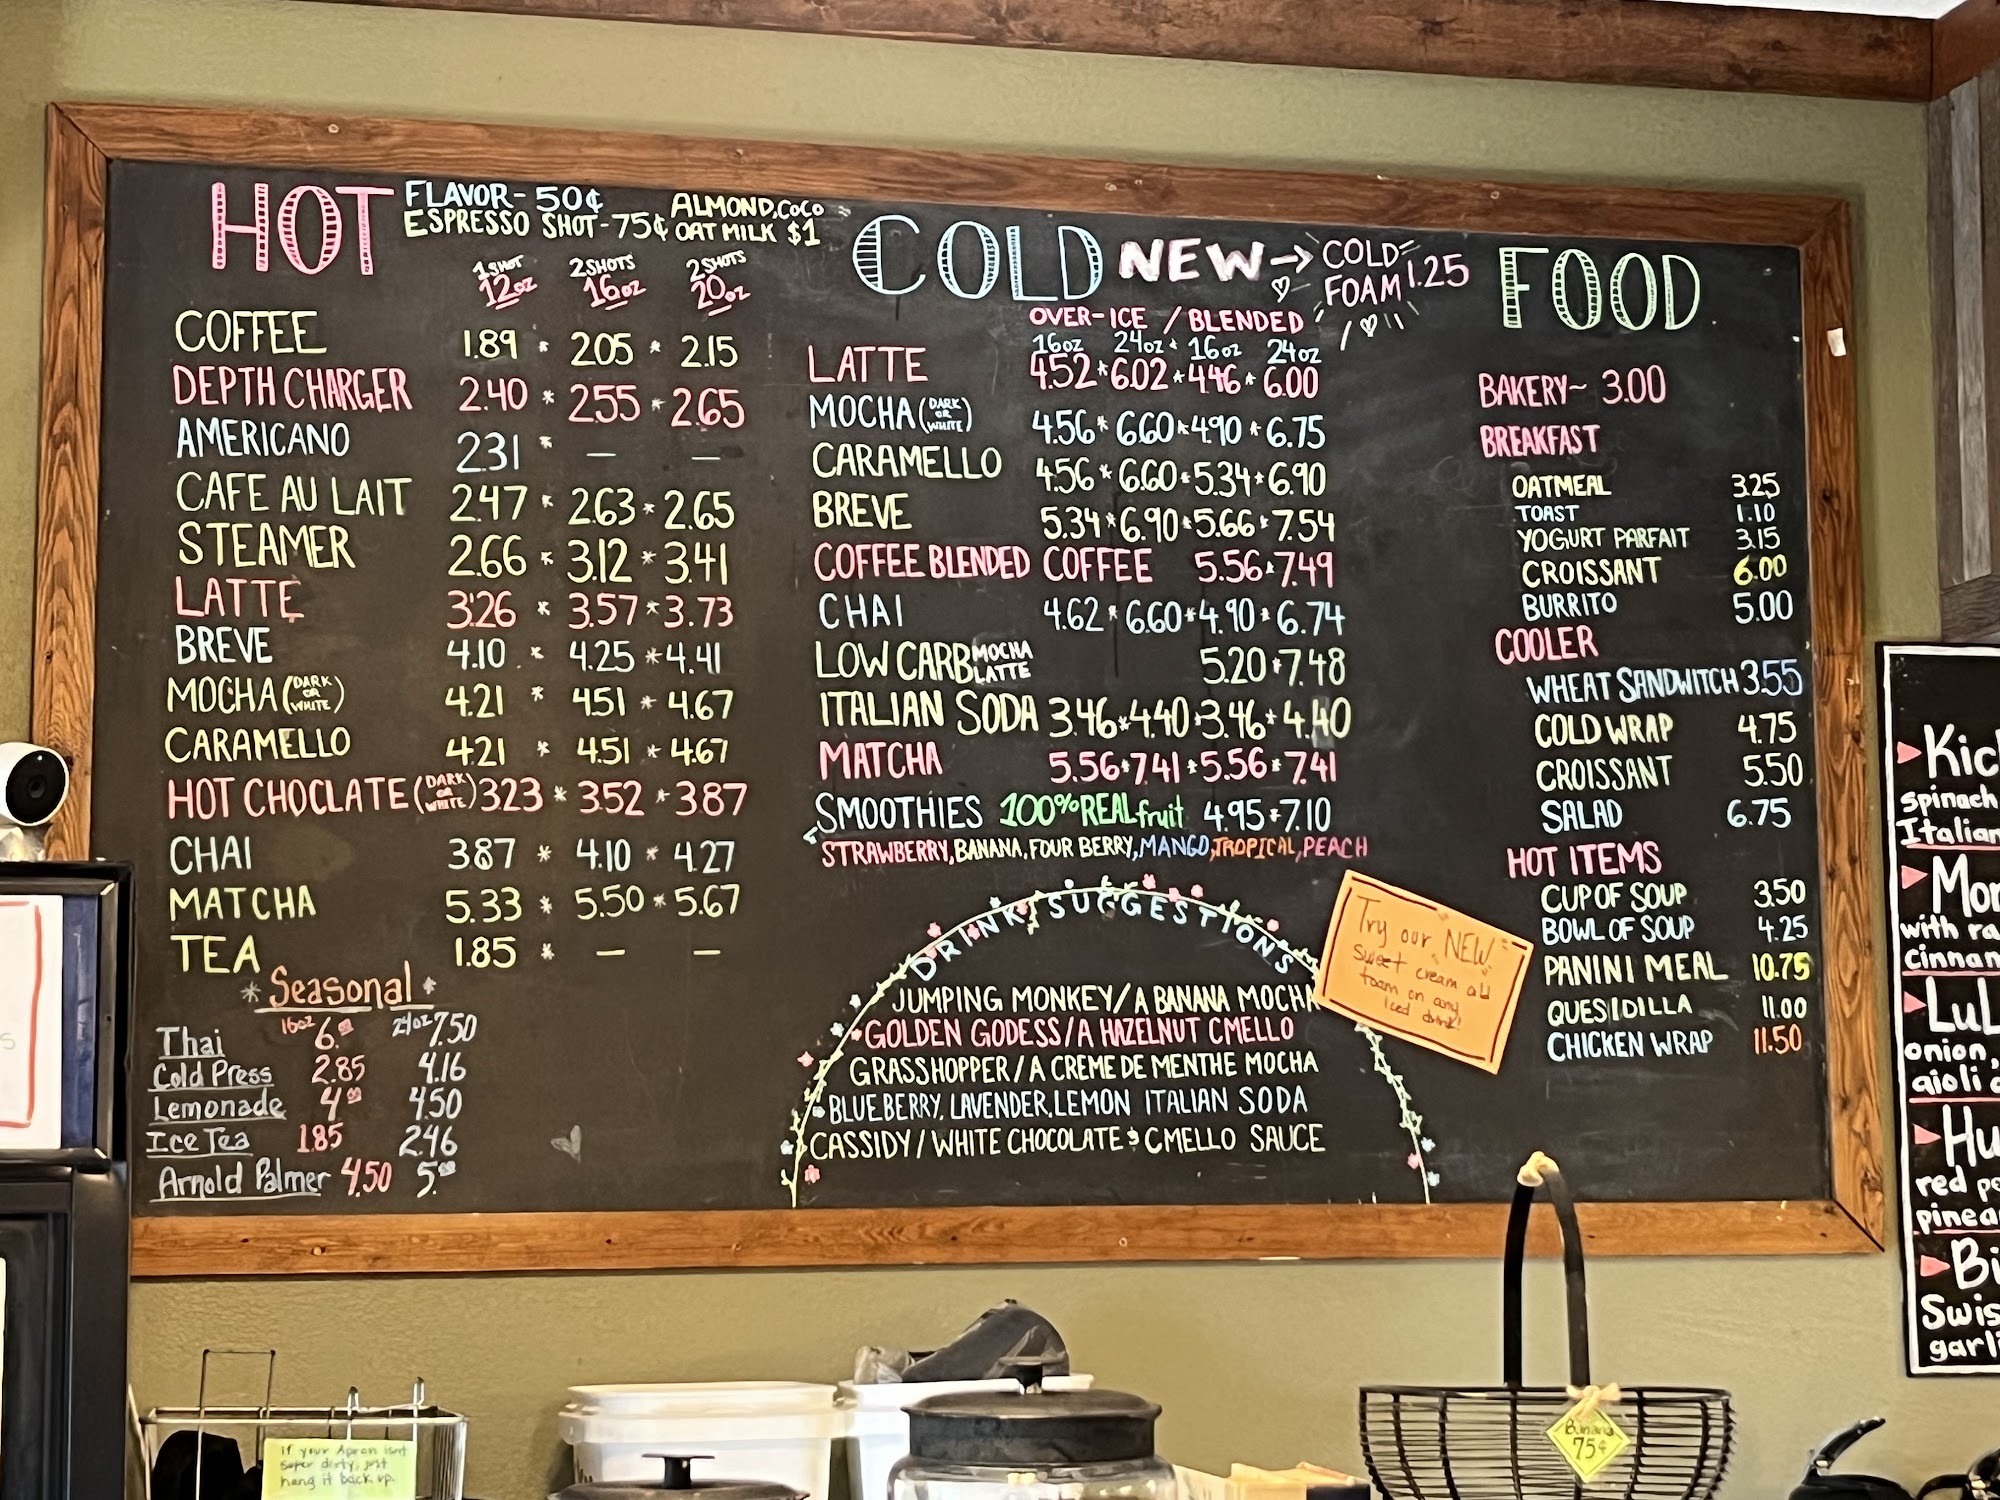 HOT
FLAVOR- 50¢
ESPRESSO SHOT-75¢
ALMOND, COCO
OAT MILK $1
1 SHOT 2 SHOTS 2 SHOTS
12oz 16oz 20oz
COFFEE 1.89 * 205 * 2.15
DEPTH CHARGER 2.40 * 255 * 265
AMERICANO 231 * — —
CAFE AU LAIT 2.47 * 2.63 * 2.65
STEAMER 2.66 * 3.12 * 3.41
LATTE 3.26 * 3.57 * 3.73
BREVE 4.10 * 4.25 * 4.41
MOCHA (DARK OR WHITE) 4.21 * 4.51 * 4.67
CARAMELLO 4.21 * 4.51 * 4.67
HOT CHOCLATE (DARK OR WHITE) 323 * 352 * 387
CHAI 387 * 4.10 * 4.27
MATCHA 5.33 * 5.50 * 5.67
TEA 1.85 * — —
* Seasonal *
16oz 24oz
Thai 6.00 7.50
Cold Press 2.85 4.16
Lemonade 4.00 4.50
Ice Tea 1.85 246
Arnold Palmer 4.50 5.00
COLD
NEW → COLD FOAM 1.25
OVER-ICE / BLENDED
16oz 24oz * 16oz 24oz
LATTE 4.52 * 6.02 * 4.46 * 6.00
MOCHA (DARK OR WHITE) 4.56 * 6.60 * 4.90 * 6.75
CARAMELLO 4.56 * 6.60 * 5.34 * 6.90
BREVE 5.34 * 6.90 * 5.66 * 7.54
COFFEE BLENDED COFFEE 5.56 * 7.49
CHAI 4.62 * 6.60 * 4.90 * 6.74
LOW CARB MOCHA LATTE 5.20 * 7.48
ITALIAN SODA 3.46 * 4.40 * 3.46 * 4.40
MATCHA 5.56 * 7.41 * 5.56 * 7.41
SMOOTHIES 100% REAL fruit 4.95 * 7.10
STRAWBERRY, BANANA, FOUR BERRY, MANGO, TROPICAL, PEACH
DRINK SUGGESTIONS
JUMPING MONKEY/A BANANA MOCHA
GOLDEN GODESS/A HAZELNUT CMELLO
GRASSHOPPER/A CREME DE MENTHE MOCHA
BLUEBERRY, LAVENDER, LEMON ITALIAN SODA
CASSIDY/WHITE CHOCOLATE & CMELLO SAUCE
Try our "NEW"
Sweet cream
foam on any
iced drink!
FOOD
BAKERY~ 3.00
BREAKFAST
OATMEAL 3.25
TOAST 1.10
YOGURT PARFAIT 3.15
CROISSANT 6.00
BURRITO 5.00
COOLER
WHEAT SANDWITCH 3.55
COLD WRAP 4.75
CROISSANT 5.50
SALAD 6.75
HOT ITEMS
CUP OF SOUP 3.50
BOWL OF SOUP 4.25
PANINI MEAL 10.75
QUESIDILLA 11.00
CHICKEN WRAP 11.50
Kic
spinach
Italian
Mon
with ra
cinnam
LuL
onion,
aioli
Hu
red pe
pinea
Bi
Swis
garli
If your Apron isn't
super dirty, just
hang it back up.
Banana
75¢